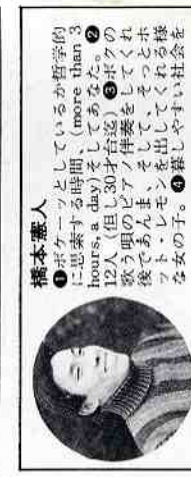 橋本憲人
❶ボケーッとしているか哲学的
に思索する時間、(more than 3
hours, a day) そしてあなた。❷
12人(但し30才台迄) ❸ボクの
歌う唄のピアノ伴奏をしてくれ
後であんま、そして、そっとホ
ット・レモンを出してくれる様
な女の子。❹暮しやすい社会を